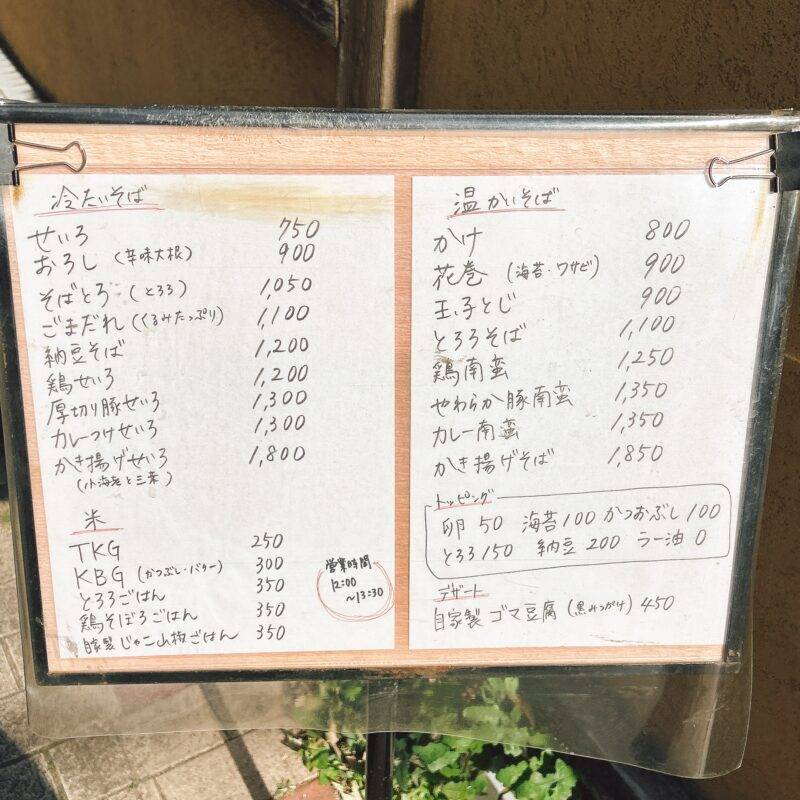 冷たいそば
せいろ 750
おろし（辛味大根） 900
そばとろ（とろろ） 1,050
ごまだれ（くるみたっぷり） 1,100
納豆そば 1,200
鶏せいろ 1,200
厚切り豚せいろ 1,300
カレーつけせいろ 1,300
かき揚げせいろ 1,800
（小海老と三葉）
米
TKG 250
KBG（かつぶし・バター） 300
とろろごはん 350
鶏そぼろごはん 350
自家製じゃこ山椒ごはん 350
営業時間
12:00
～13:30
温かいそば
かけ 800
花巻（海苔・ワサビ） 900
玉子とじ 900
とろろそば 1,100
鶏南蛮 1,250
やわらか豚南蛮 1,350
カレー南蛮 1,350
かき揚げそば 1,850
トッピング
卵 50 海苔 100 かつおぶし 100
とろろ 150 納豆 200 ラー油 0
デザート
自家製 ゴマ豆腐（黒みつがけ） 450